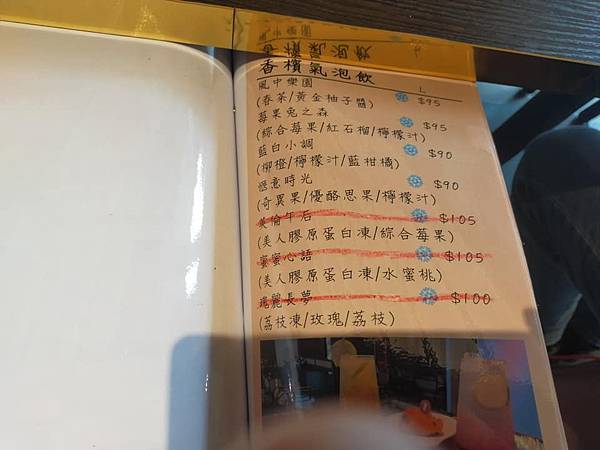 香檳氣泡飲
L
風中樂園 $95
(春茶/黃金柚子醬)
莓果兔之森 $95
(綜合莓果/紅石榴/檸檬汁)
藍白小調 $90
(柳橙/檸檬汁/藍柑橘)
愜意時光 $90
(奇異果/優酪思果/檸檬汁)
美倫午后 $105
(美人膠原蛋白凍/綜合莓果)
蜜蜜心語 $105
(美人膠原蛋白凍/水蜜桃)
瑰麗長夢 $100
(荔枝凍/玫瑰/荔枝)